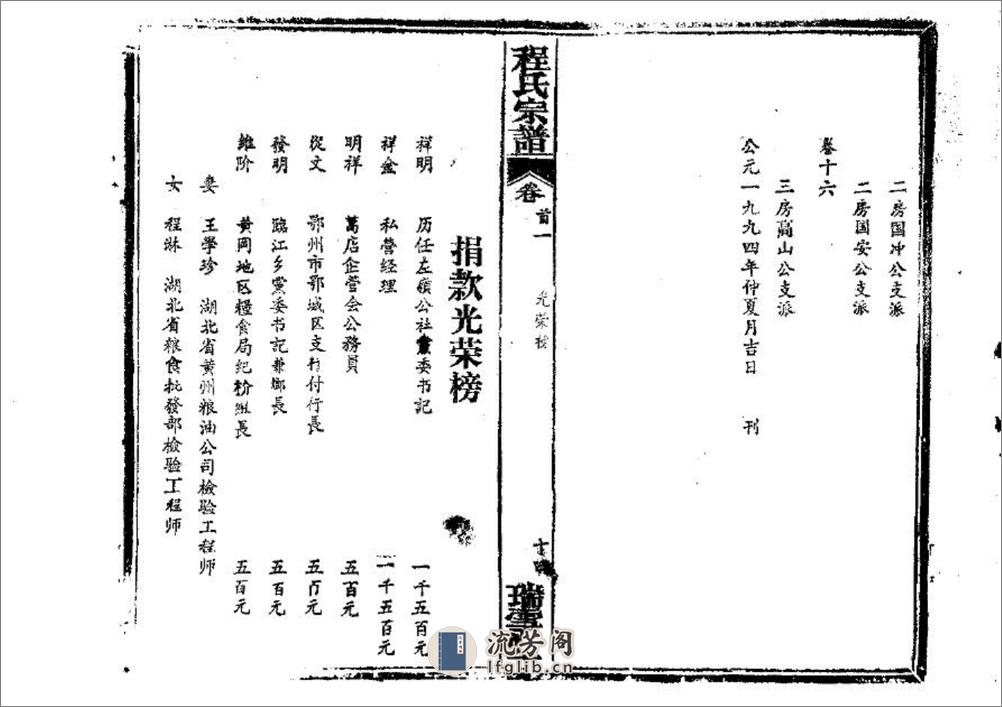 二房国冲公支派
二房国安公支派
卷十六
三房高山公支派
公元一九九四年仲夏月吉日 刊
程氏宗譜
卷首一
光荣榜
十四
瑞雪
捐款光荣榜
祥明 历任左嶺公社黨委书记 一千五百元
祥金 私營经理 一千五百元
明祥 葛店企管会公務員 五百元
從文 鄂州市鄂城区支行付行長 五百元
發明 臨江乡黨委书记兼鄉長 五百元
維阶 黃岡地区糧食局纪检组長 五百元
妻 王學珍 湖北省黄州粮油公司檢验工程师
女 程淋 湖北省粮食批發部檢验工程师
流芳阁
lfglib.cn